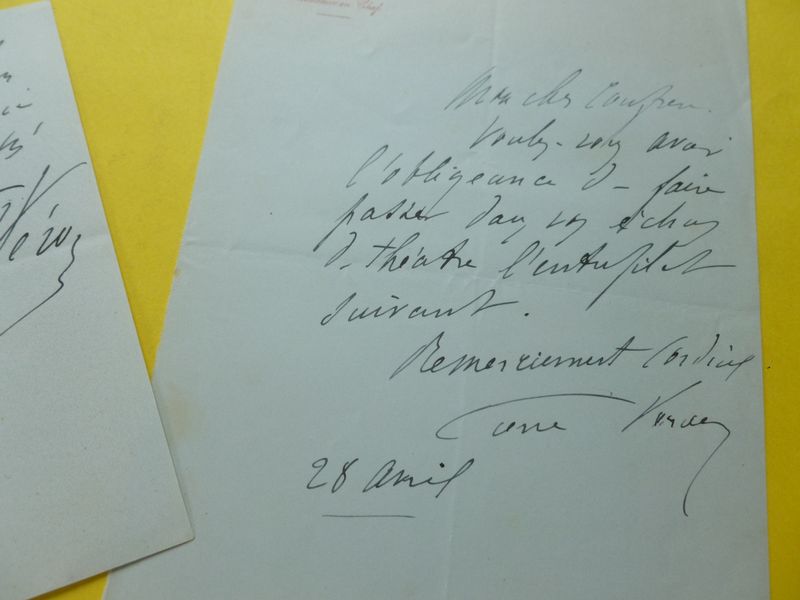 Mon cher Confrère
Voulez-vous avoir
l'obligeance de faire
passer dans vos échos
de théâtre l'entrefilet
suivant.
Remerciements Cordiaux
Pierre Véron
28 avril
Véron